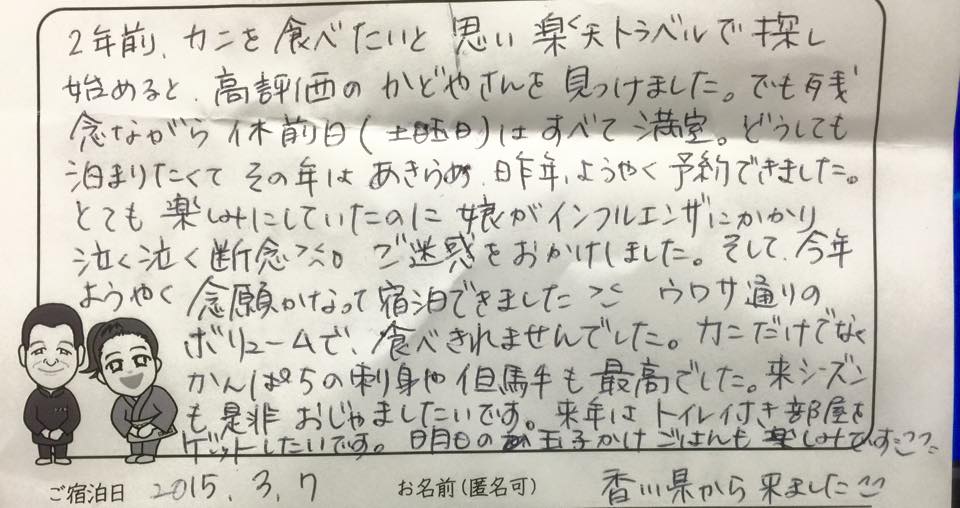 2年前、カニを食べたいと思い楽天トラベルで探し
始めると、高評価のかどやさんを見つけました。でも残
念ながら休前日(土曜日)はすべて満室。どうしても
泊まりたくてその年はあきらめ、昨年、ようやく予約できました。
とても楽しみにしていたのに娘がインフルエンザにかかり
泣く泣く断念。ご迷惑をおかけしました。そして、今年
ようやく念願かなって宿泊できました ウワサ通りの
ボリュームで、食べきれませんでした。カニだけでなく
かんぱちの刺身や但馬牛も最高でした。来シーズン
も是非おじゃましたいです。来年はトイレ付き部屋を
ゲットしたいです。明日の玉子かけごはんも楽しみです
ご宿泊日 2015.3.7 お名前(匿名可) 香川県から来ました